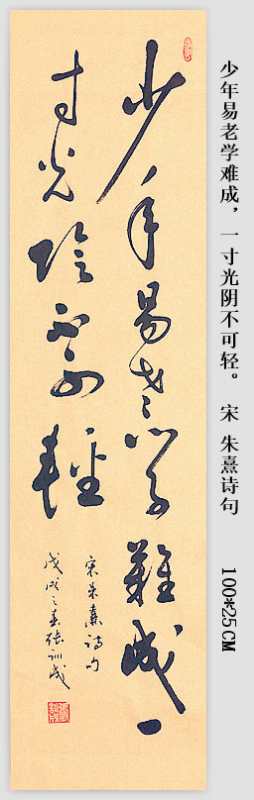 少年易老学难成，一寸光阴不可轻。 宋 朱熹诗句 100*25CM
少年易老学難成一
寸光陰不可輕
宋朱熹诗句
戊戌之春張